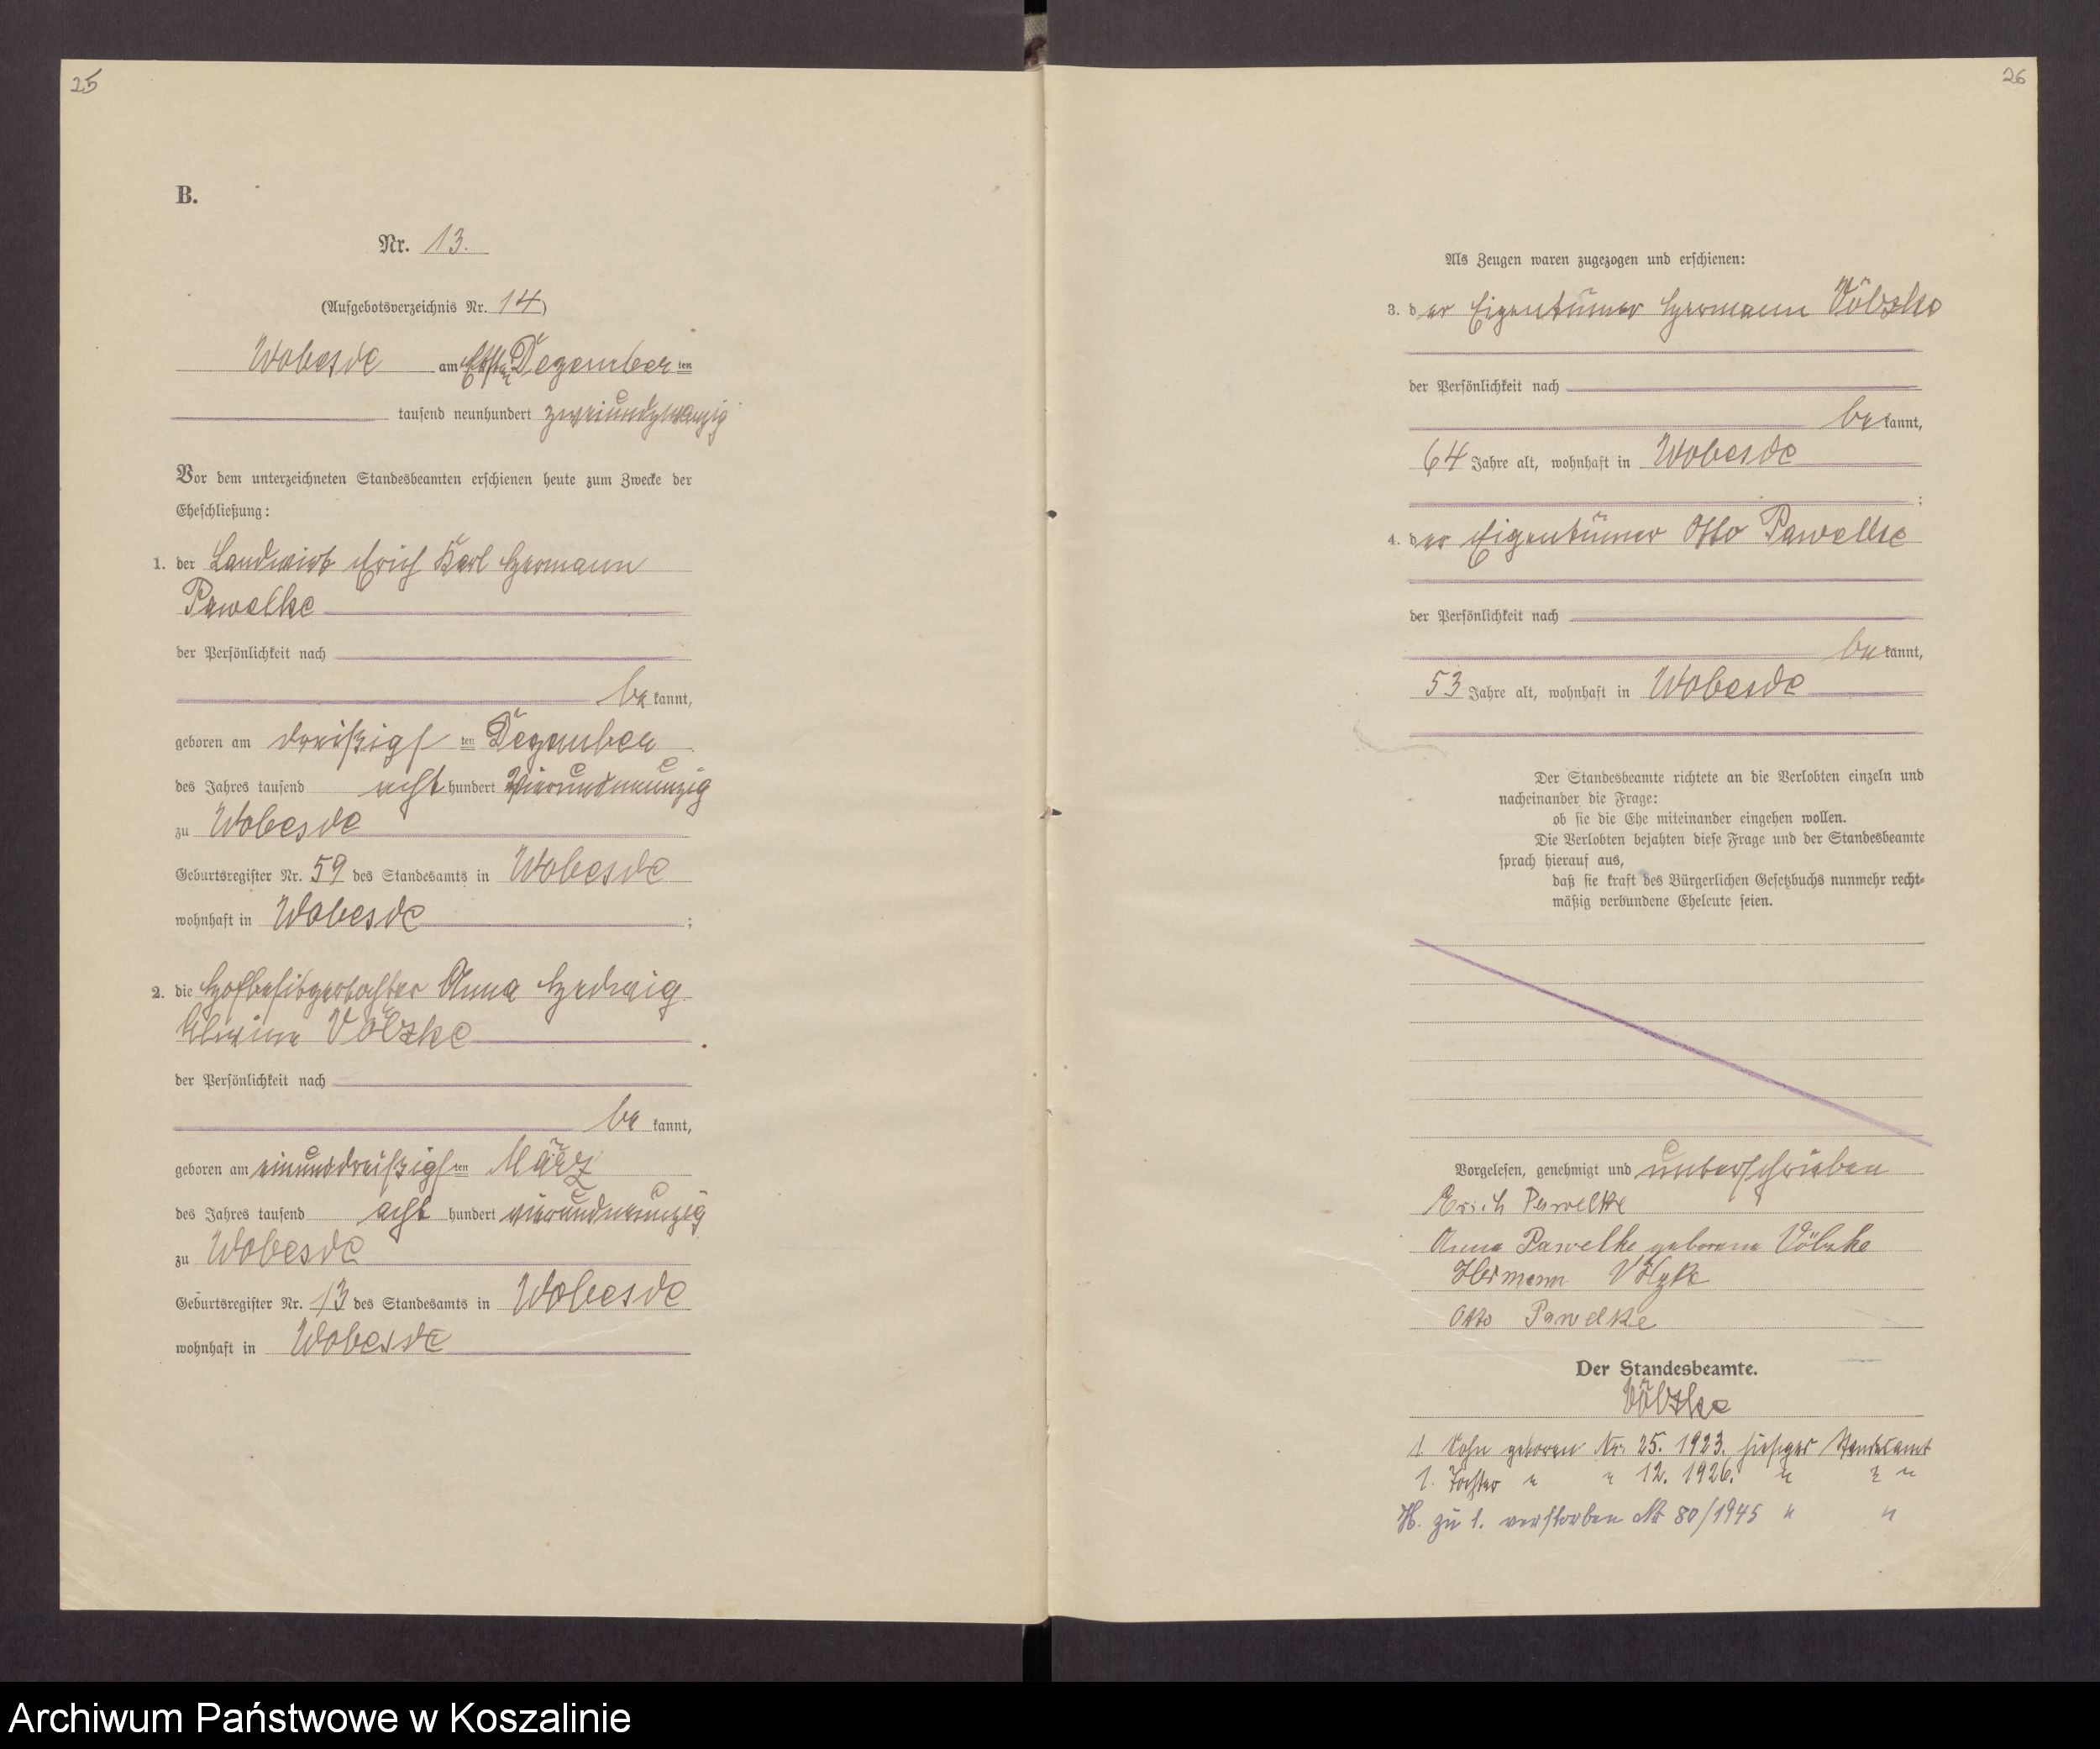 25
B.
Nr. 13.
(Aufgebotsverzeichnis Nr. 14)
Wobesde am Ersten Dezember ten
tausend neunhundert zweiundzwanzig
Vor dem unterzeichneten Standesbeamten erschienen heute zum Zwecke der
Eheschließung:
1. der Landwirt Erich Karl Hermann
Pawelke
der Persönlichkeit nach
be kannt,
geboren am dreißigs ten Dezember
des Jahres tausend acht hundert vierundneunzig
zu Wobesde
Geburtsregister Nr. 59 des Standesamts in Wobesde
wohnhaft in Wobesde ;
2. die Hofbesitzertochter Anna Hedwig
Völzke
der Persönlichkeit nach
be kannt,
geboren am einunddreißigs ten März
des Jahres tausend acht hundert vierundneunzig
zu Wobesde
Geburtsregister Nr. 13 des Standesamts in Wobesde
wohnhaft in Wobesde
26
Als Zeugen waren zugezogen und erschienen:
3. der Eigentümer Hermann Völzke
der Persönlichkeit nach
be kannt,
64 Jahre alt, wohnhaft in Wobesde
;
4. der Eigentümer Otto Pawelke
der Persönlichkeit nach
be kannt,
53 Jahre alt, wohnhaft in Wobesde
Der Standesbeamte richtete an die Verlobten einzeln und
nacheinander die Frage:
ob sie die Ehe miteinander eingehen wollen.
Die Verlobten bejahten diese Frage und der Standesbeamte
sprach hierauf aus,
daß sie kraft des Bürgerlichen Gesetzbuchs nunmehr recht-
mäßig verbundene Eheleute seien.
Vorgelesen, genehmigt und unterschrieben
Erich Pawelke
Anna Pawelke geborene Völzke
Hermann Völzke
Otto Pawelke
Der Standesbeamte.
Völzke
1. Sohn geboren Nr. 25. 1923. hiesiges Standesamt
1. Tochter " " 12. 1926. " "
H. zu 1. verstorben Nr 80/1945 " "
Archiwum Państwowe w Koszalinie